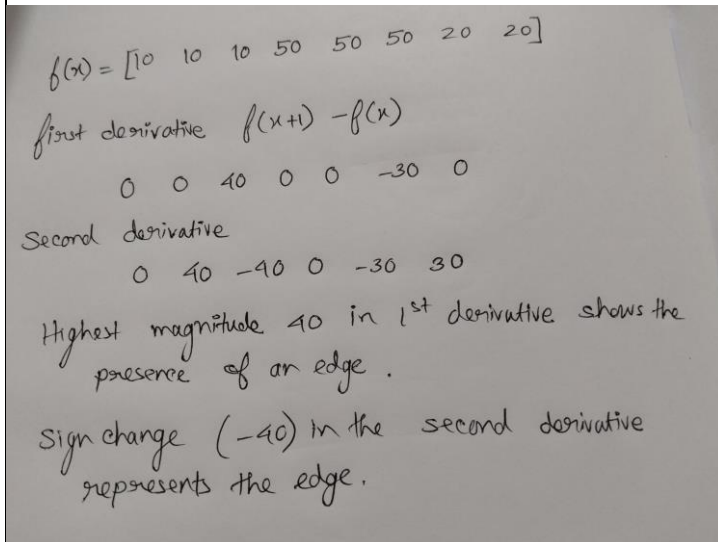 f(x) = [10 10 10 50 50 50 20 20]
first derivative f(x+1) - f(x)
0 0 40 0 0 -30 0
Second derivative
0 40 -40 0 -30 30
Highest magnitude 40 in 1st derivative shows the
presence of an edge.
Sign change (-40) in the second derivative
represents the edge.